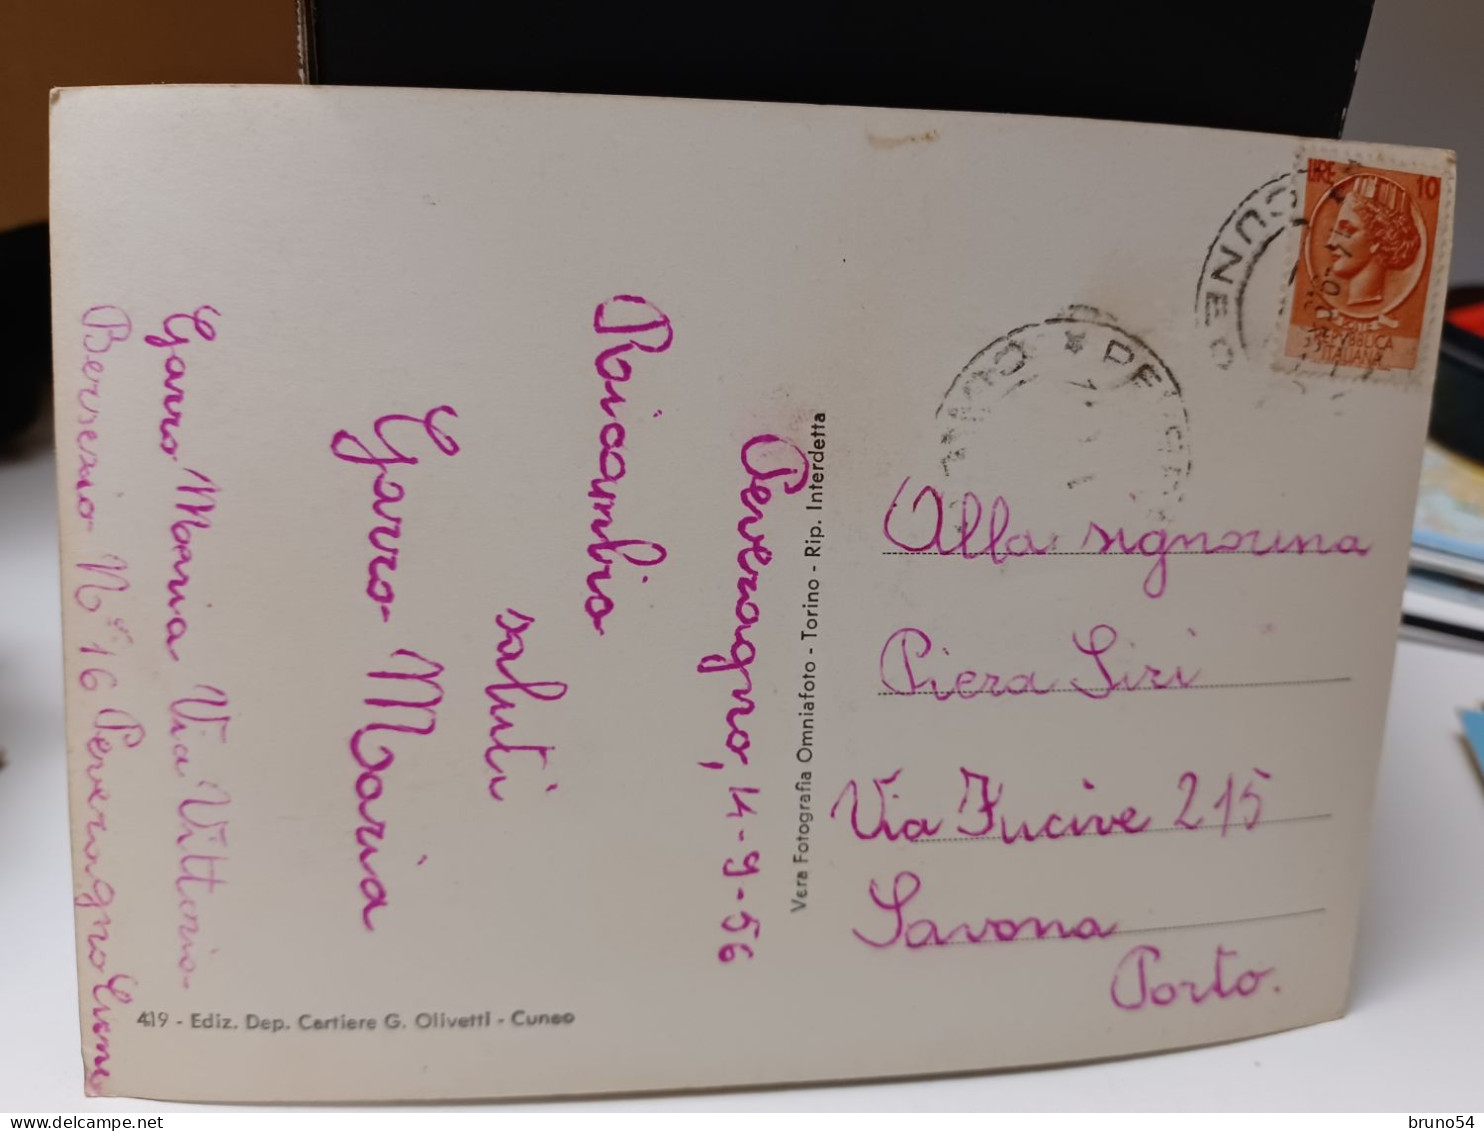 Peveragno, 14-9-56
Ricambio
saluti
Garro Maria
Garro Maria Via Vittorio
Bersezio N° 16 Peveragno Cuneo
419 - Ediz. Dep. Cartiere G. Olivetti - Cuneo
Vera Fotografia Omniafoto - Torino - Rip. Interdetta
LIRE 10
REPUBBLICA
ITALIANA
CUNEO
Alla signorina
Piera Siri
Via Fucine 215
Savona
Porto.
delcampe.net
bruno54